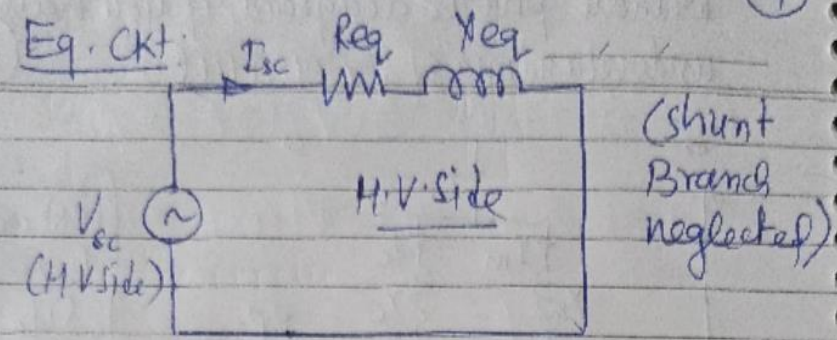 1
Eq. Ckt.
Isc Req Xeq
(Shunt
Branch
neglected)
H.V. Side
Vsc
(H.V side)